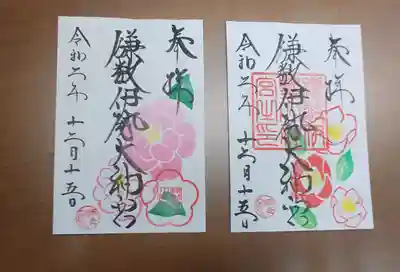 奉拝
鎌数伊勢大神宮
令和二年十二月十五日
奉拝
鎌数伊勢大神宮
令和二年十二月十五日